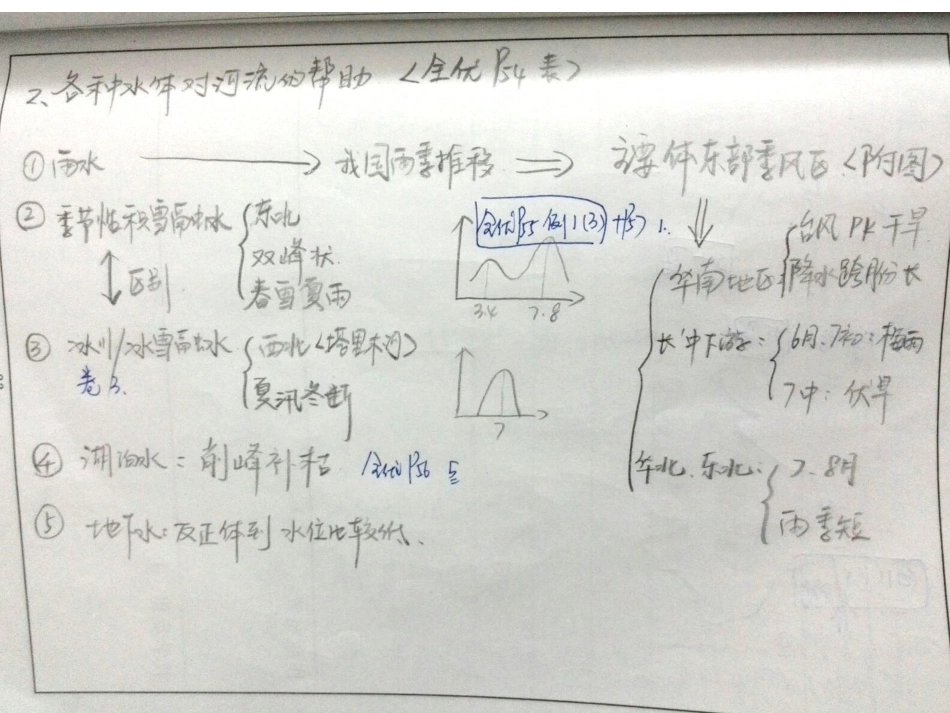 2、各种水体对河流的帮助 <全优P54表>
① 雨水 → 我国雨季推移 ⇒ 主要体东部季风区<附图>
② 季节性积雪融水 { 东北
双峰状
春雪夏雨
全优P55例1(3) P57 1.
3.4 7.8
↕区别
③ 冰川/冰雪融水 { 西北<塔里木河>
夏汛冬断
卷3.
7
④ 湖泊水：削峰补枯 全优P56 5
⑤ 地下水：反正体到水位比较低、
华南地区 { 台风PK干旱
降水跨月份长
长中下游： { 6月、7初：梅雨
7中：伏旱
华北、东北： { 7、8月
雨季短